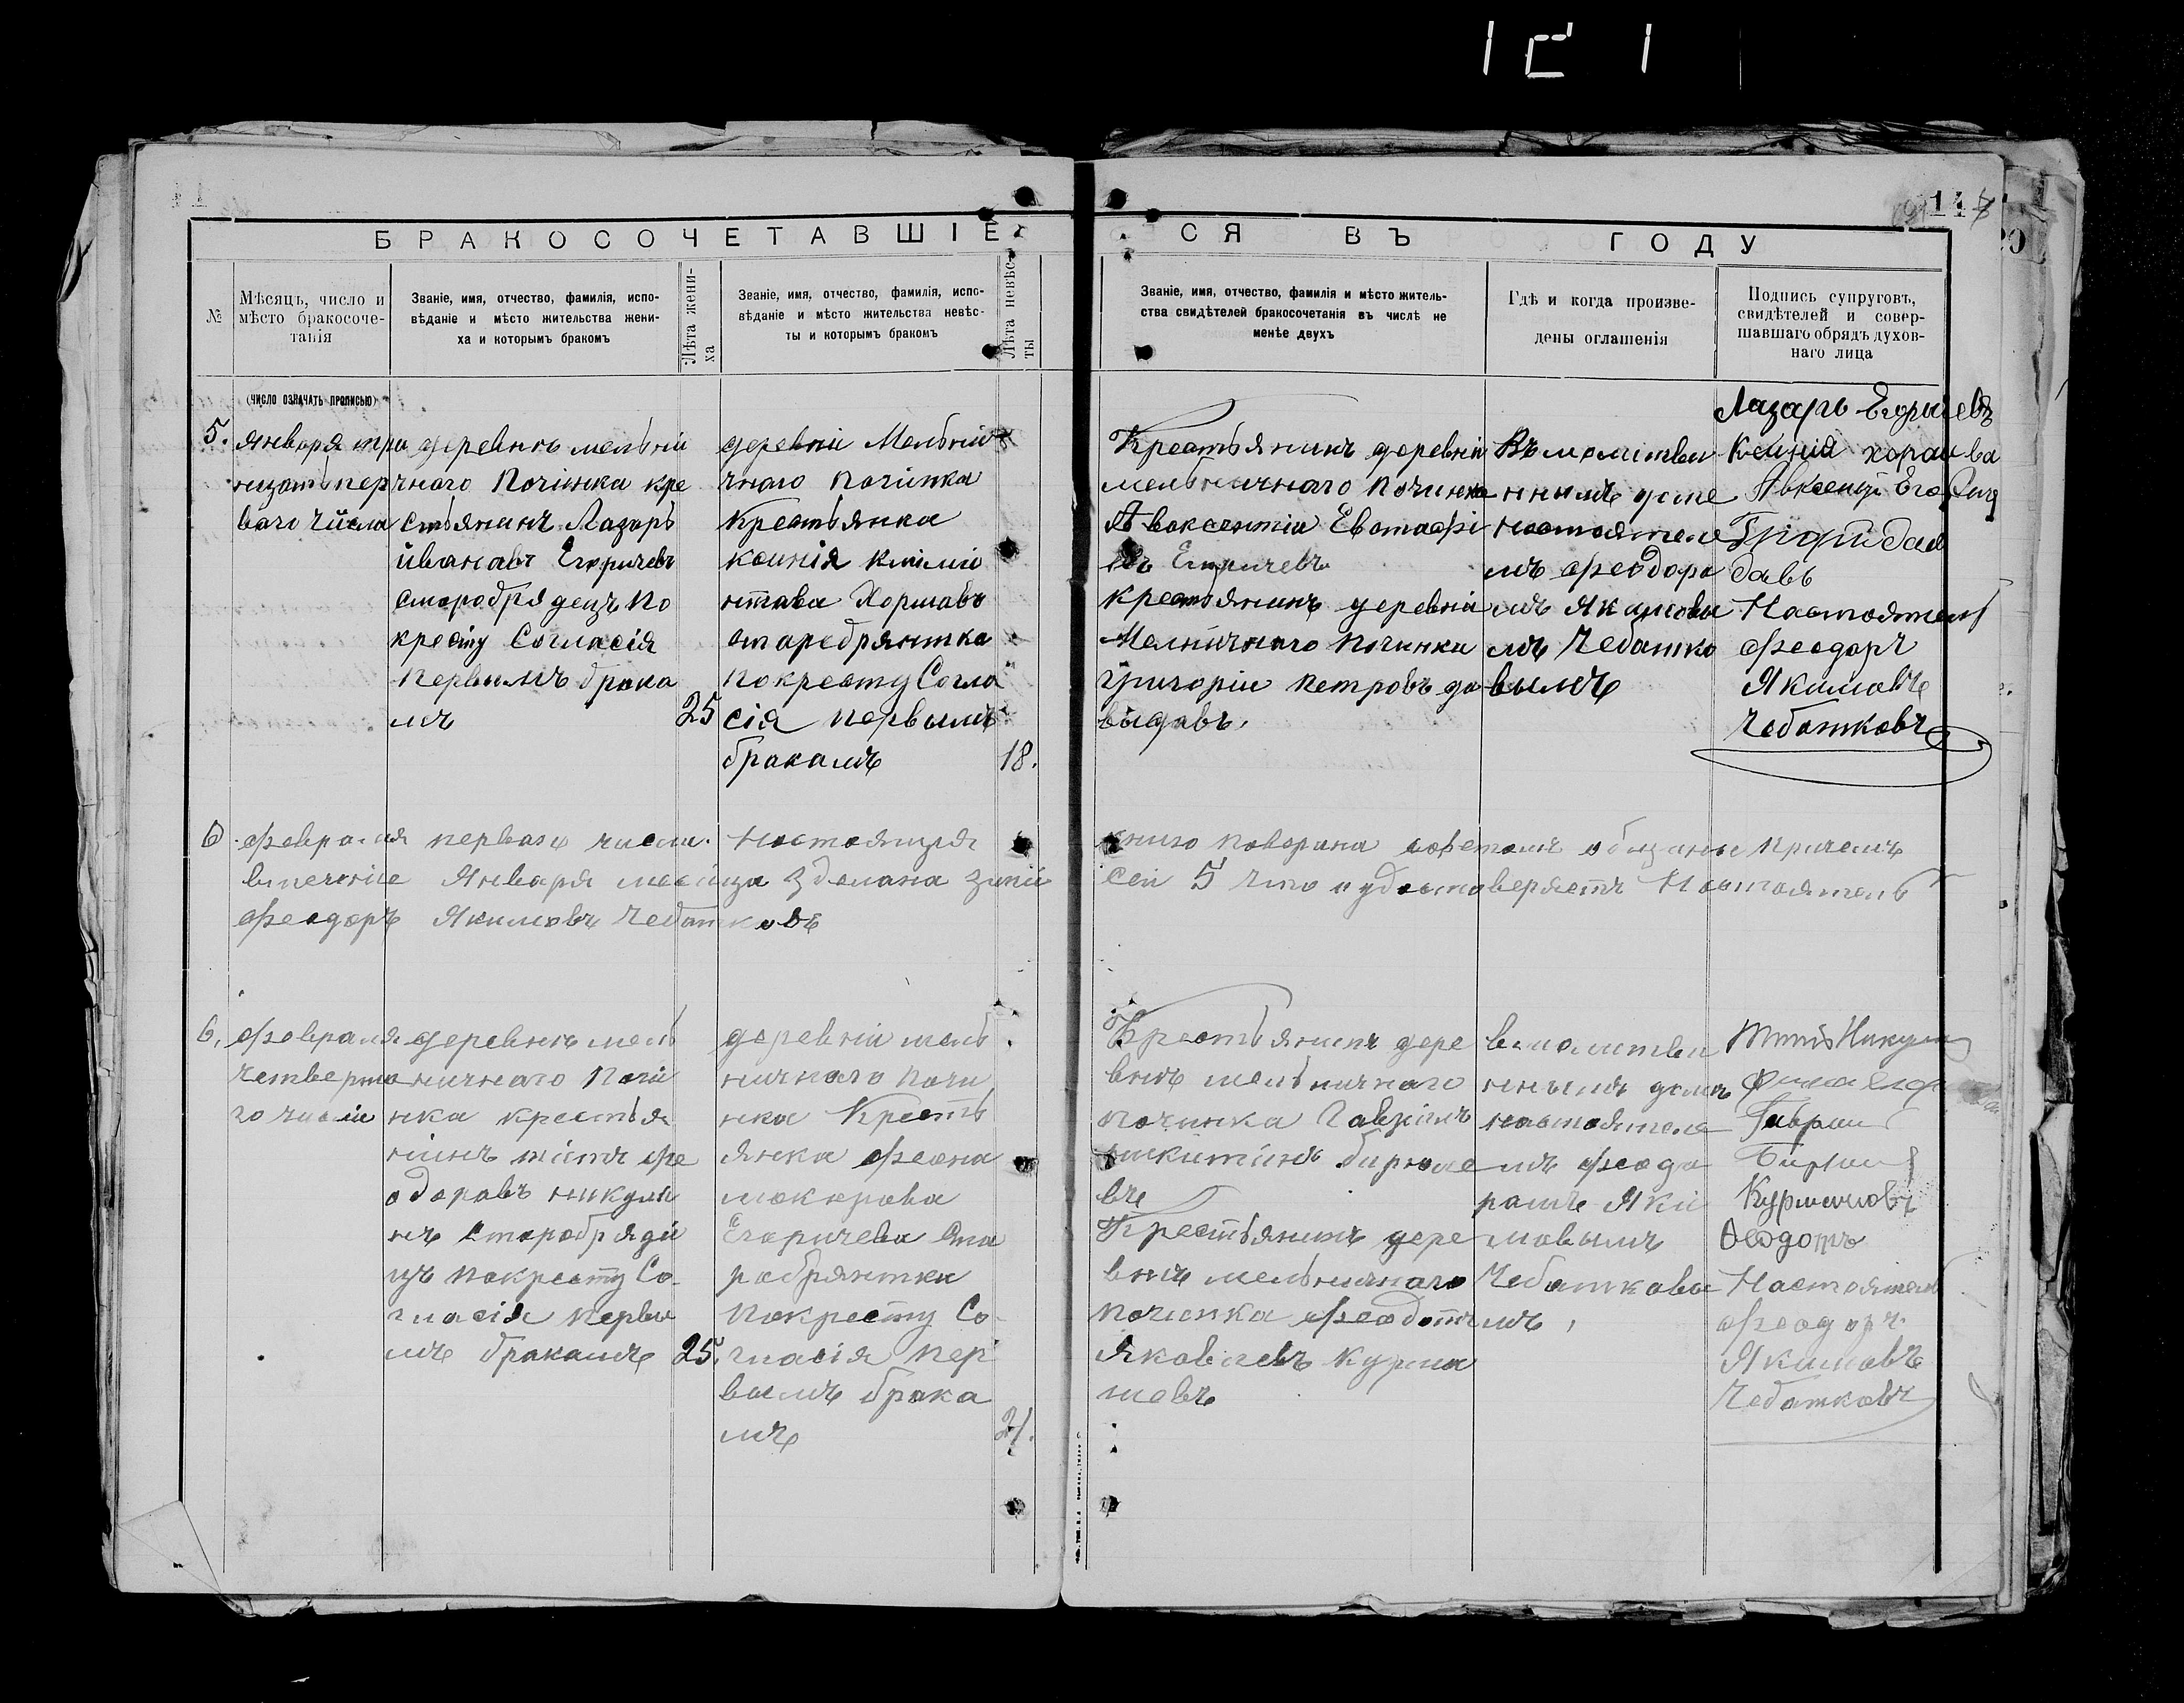 БРАКОСОЧЕТАВШІЕСЯ ВЪ ГОДУ
№
Мѣсяцъ, число и
мѣсто бракосоче-
танія
(число означать прописью)
Званіе, имя, отчество, фамилія, испо-
вѣданіе и мѣсто жительства жени-
ха и которымъ бракомъ
Лѣта жени-
ха
Званіе, имя, отчество, фамилія, испо-
вѣданіе и мѣсто жительства невѣс-
ты и которымъ бракомъ
Лѣта невѣс-
ты
Званіе, имя, отчество, фамилія и мѣсто житель-
ства свидѣтелей бракосочетанія въ числѣ не
менѣе двухъ
Гдѣ и когда произве-
дены оглашенія
Подпись супруговъ,
свидѣтелей и совер-
шавшаго обрядъ духов-
наго лица
5.
января три
цать пер
ваго числа
деревнъ мельни
чнаго Починка кре
стьянинъ Лазарь
ивановъ Егоричевъ
старобрядецъ по
кресту Согласія
первымъ брака
мъ
25
деревни Мельни
чнаго починка
крестьянка
ксинія
Хоршавъ
старебрянтка
по кресту Согла
сія первымъ
бракамъ
18.
Крестьянинъ деревни
мельничнаго починка
Авоксентіи Евстафі
въ Егоричевъ
крестьянинъ деревни
Мелничнаго Починки
григоріи петровъ да
выдавъ.
Въ молитве
ннымъ доме
настоятеле
мъ феодора
мъ Якимовы
мъ Чебатко
вымъ
Лазаръ Егоричевъ
Ксинія
Авксенці
давъ
Настоятель
феодоръ
Якимовъ
Чебатковъ
6. февраля перваго числа. Настоящия
книга поверина
втечение Января месяца зделана
сей 5 что и удостоверяетъ Настоятель
феодоръ Якимовъ Чебатковъ
6.
февраля
четверта
го числа
деревнъ мель
ничнаго Почи
нка крестья
нинъ титъ фе
одоровъ никули
нъ Старобряди
цъ покресту Со
гласія первы
мъ бракамъ
25.
деревни мель
ничнаго почи
нка Кресть
янка феона
макарова
Егоричева Ста
робрянтка
Покресту Со
гласія пер
вымъ брака
мъ
21.
Крестьянинъ дере
внъ мельничнаго
починка
никитинъ бирюле
въ
Крестьянинъ дере
внъ мельничнаго
починка феодотъ
Яковлевъ курма
шовъ
вмалитве
ннымъ домъ
настоятеле
мъ феода
рамъ Яки
мовымъ
Чебаткавы
мъ,
Титъ Никулин
Гаврил
Курмашовъ
Настоятель
феодоръ
Якимовъ
Чебатковъ